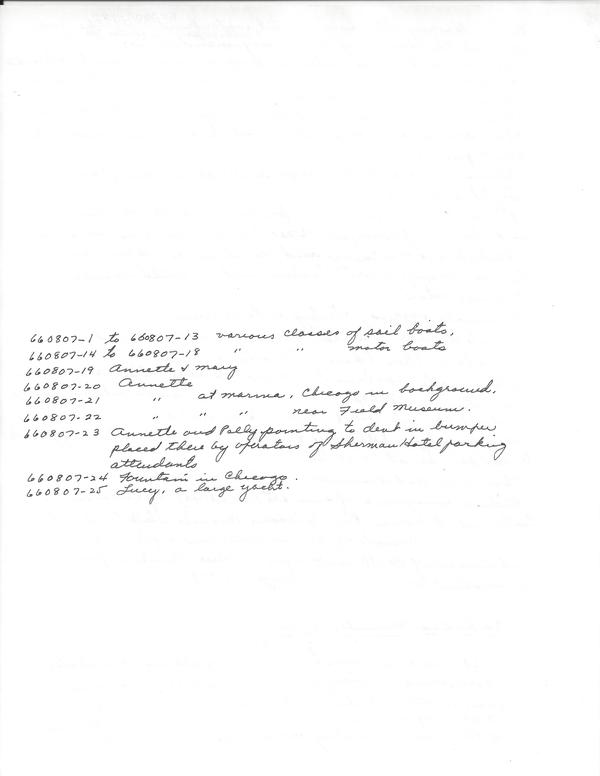 660807-1 to 660807-13 various classes of sail boats.
660807-14 to 660807-18 " " motor boats
660807-19 Annette & Mary
660807-20 Annette
660807-21 " at marina, Chicago in background.
660807-22 " " " near Field Museum.
660807-23 Annette and Polly pointing to dent in bumper
placed there by operators of Sherman Hotel parking
attendants
660807-24 Fountain in Chicago.
660807-25 Lucy, a large yacht.